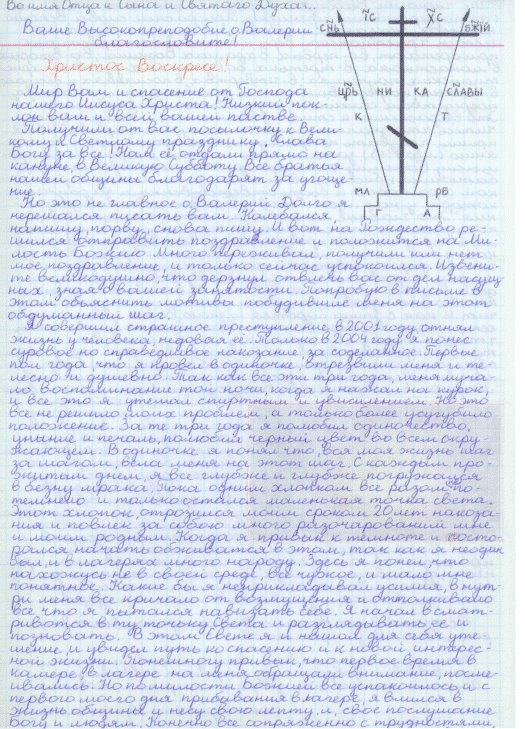 Во имя Отца и Сына и Святаго Духа..
Ваше Высокопреподобие о. Валерий
благословите!
Христос Воскресе!
СНЪ
IС
ХС
БЖIЙ
ЦРЬ
НИ
КА
СЛАВЫ
К
Т
МЛ
РБ
Г
А
Мир Вам и спасение от Господа
нашего Иисуса Христа! Низкий пок-
лон вам и всей вашей пастве.
Получили от вас посылочку к Вели-
кому и Светлому празднику. Слава
Богу за все! Нам её отдали прямо на
кануне в Великую Субботу. Все братья
нашей общины благодарят за угоще-
ние.
Но это не главное о. Валерий. Долго я
нерешался писать вам. Колебался,
напишу, порву, снова пишу. И вот на Рождество ре-
шился отправить поздравление и положится на Ми-
лость Божию. Много переживал, получили или нет
мое поздравление, и только сейчас успокоился. Извени-
те великодушно, что дерзнул отвлечь вас от дел насущ-
ных, зная о вашей занятости. Попробую в письме
этом объяснить мотивы побудившие меня на этот
обдуманный шаг.
Я совершил страшное преступление, в 2001 году отнял
жизнь у человека, недовая её. Только в 2004 году я понес
суровое но справедливое наказание, за содеянное. Первые
пол года, что я провел в одиночке, втрезвили меня и те-
лесно и душевно. Так как все эти три года, меня мучи-
ло, воспоминание той ночи, когда я нажал на курок,
и все это я утешал спиртным и увиселением. Но это
все не решило моих проблем, а только более усугубило
положение. За те три года я полюбил одиночество,
уныние и печаль, полюбил черный цвет во всем окру-
жающем. В одиночке я понял что, вся моя жизнь шаг
за шагом, вела меня на этот шаг. С каждым про-
житым днем, я все глубже и глубже погружался
в бездну мрака. Пока одним хлопком все разом по-
темнело и только осталась маленькая точка света.
Этот хлопок, отрозился моим сроком 20 лет наказа-
ния и повлек за собою много разочарований мне
и моим родным. Когда я привык к темноте и поста-
рался начать обживатся в этом, так как я неодин
был, и в лагерях много народу. Здесь я понел, что
нахожусь не в своей среде, все чужое, и мало мне
понятное. Какие бы я неприкладывал усилия, внут-
ри меня все кричало от возмущения и отталкивало
все что я пытался навизать себе. Я начал всмат-
риватся в ту точку света и разглядывать её и
познавать. В этом свете я и нашол для себя уте-
шение, и увидел путь ко спасению и к новой интерес-
ной жизни. Понемногу привык, что первое время в
камере, в лагере на меня обращали внимание, посме-
ивались. Но по милости Божией все успакоилось, и с
первого моего дня прибывания в лагере, я влился в
жизнь общины и несу свою лепту и, свое послушание
Богу и людям. Конечно все сопряженно с трудностями,